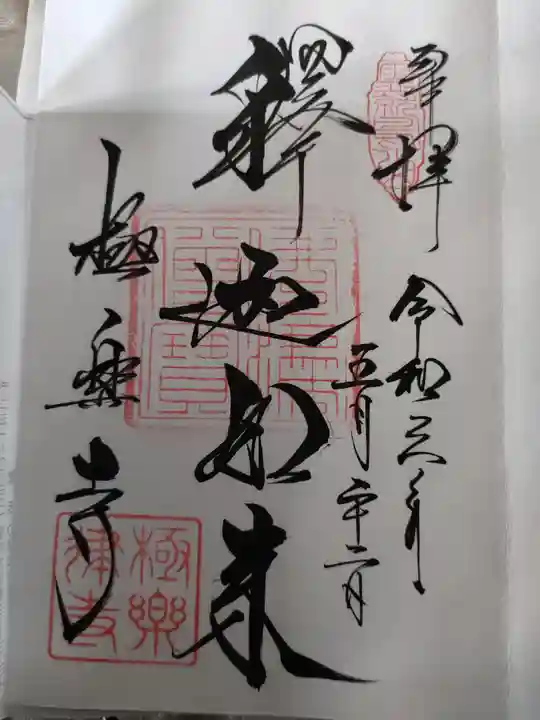 奉拝
令和六年
五月二十二日
釋迦如来
極楽寺
極樂律寺